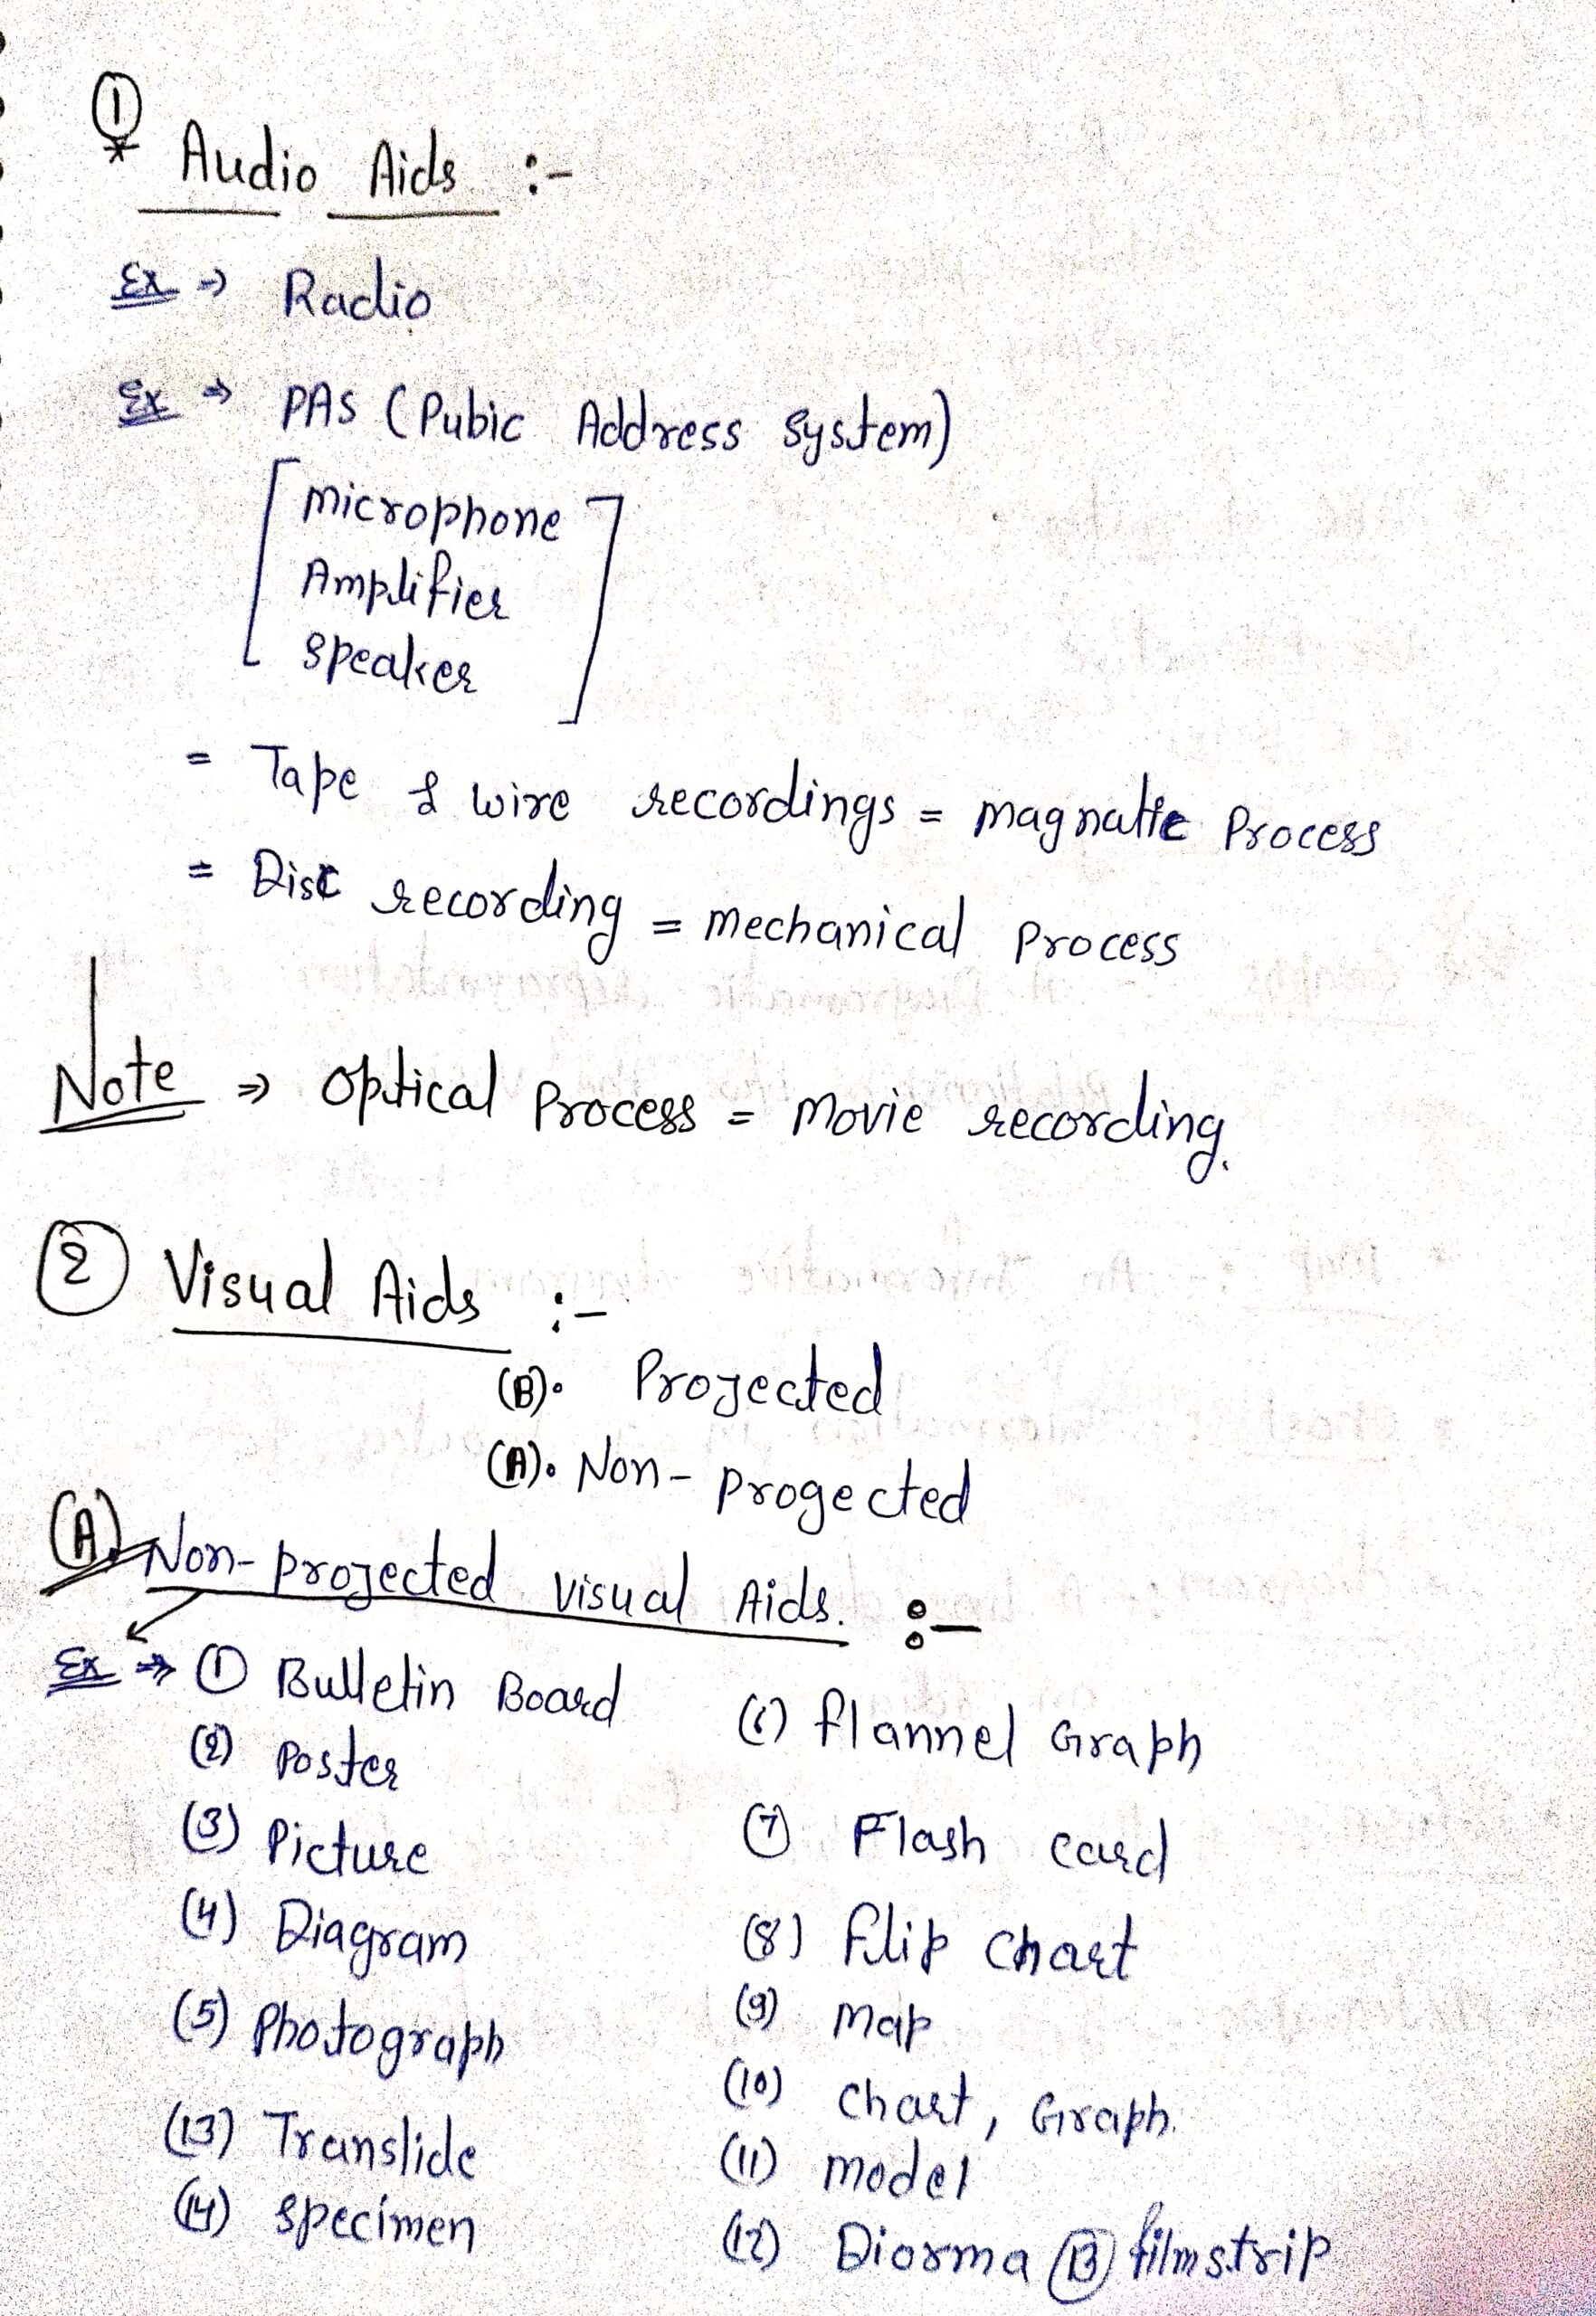 ① Audio Aids :-
Ex ⇒ Radio
Ex ⇒ PAS (Pubic Address System)
Microphone
Amplifier
Speaker
= Tape & wire recordings = magnatic Process
= Disc recording = mechanical Process
Note ⇒ Optical Process = Movie recording.
② Visual Aids :-
(B). Projected
(A). Non-progected
(A). Non-projected visual Aids. :-
Ex ⇒ ① Bulletin Board
(2) Poster
(3) Picture
(4) Diagram
(5) Photograph
(13) Translide
(14) Specimen
(6) flannel Graph
⑦ Flash card
(8) flip chart
(9) Map
(10) chart, Graph.
(11) model
(12) Diorma ⑬ filmstrip